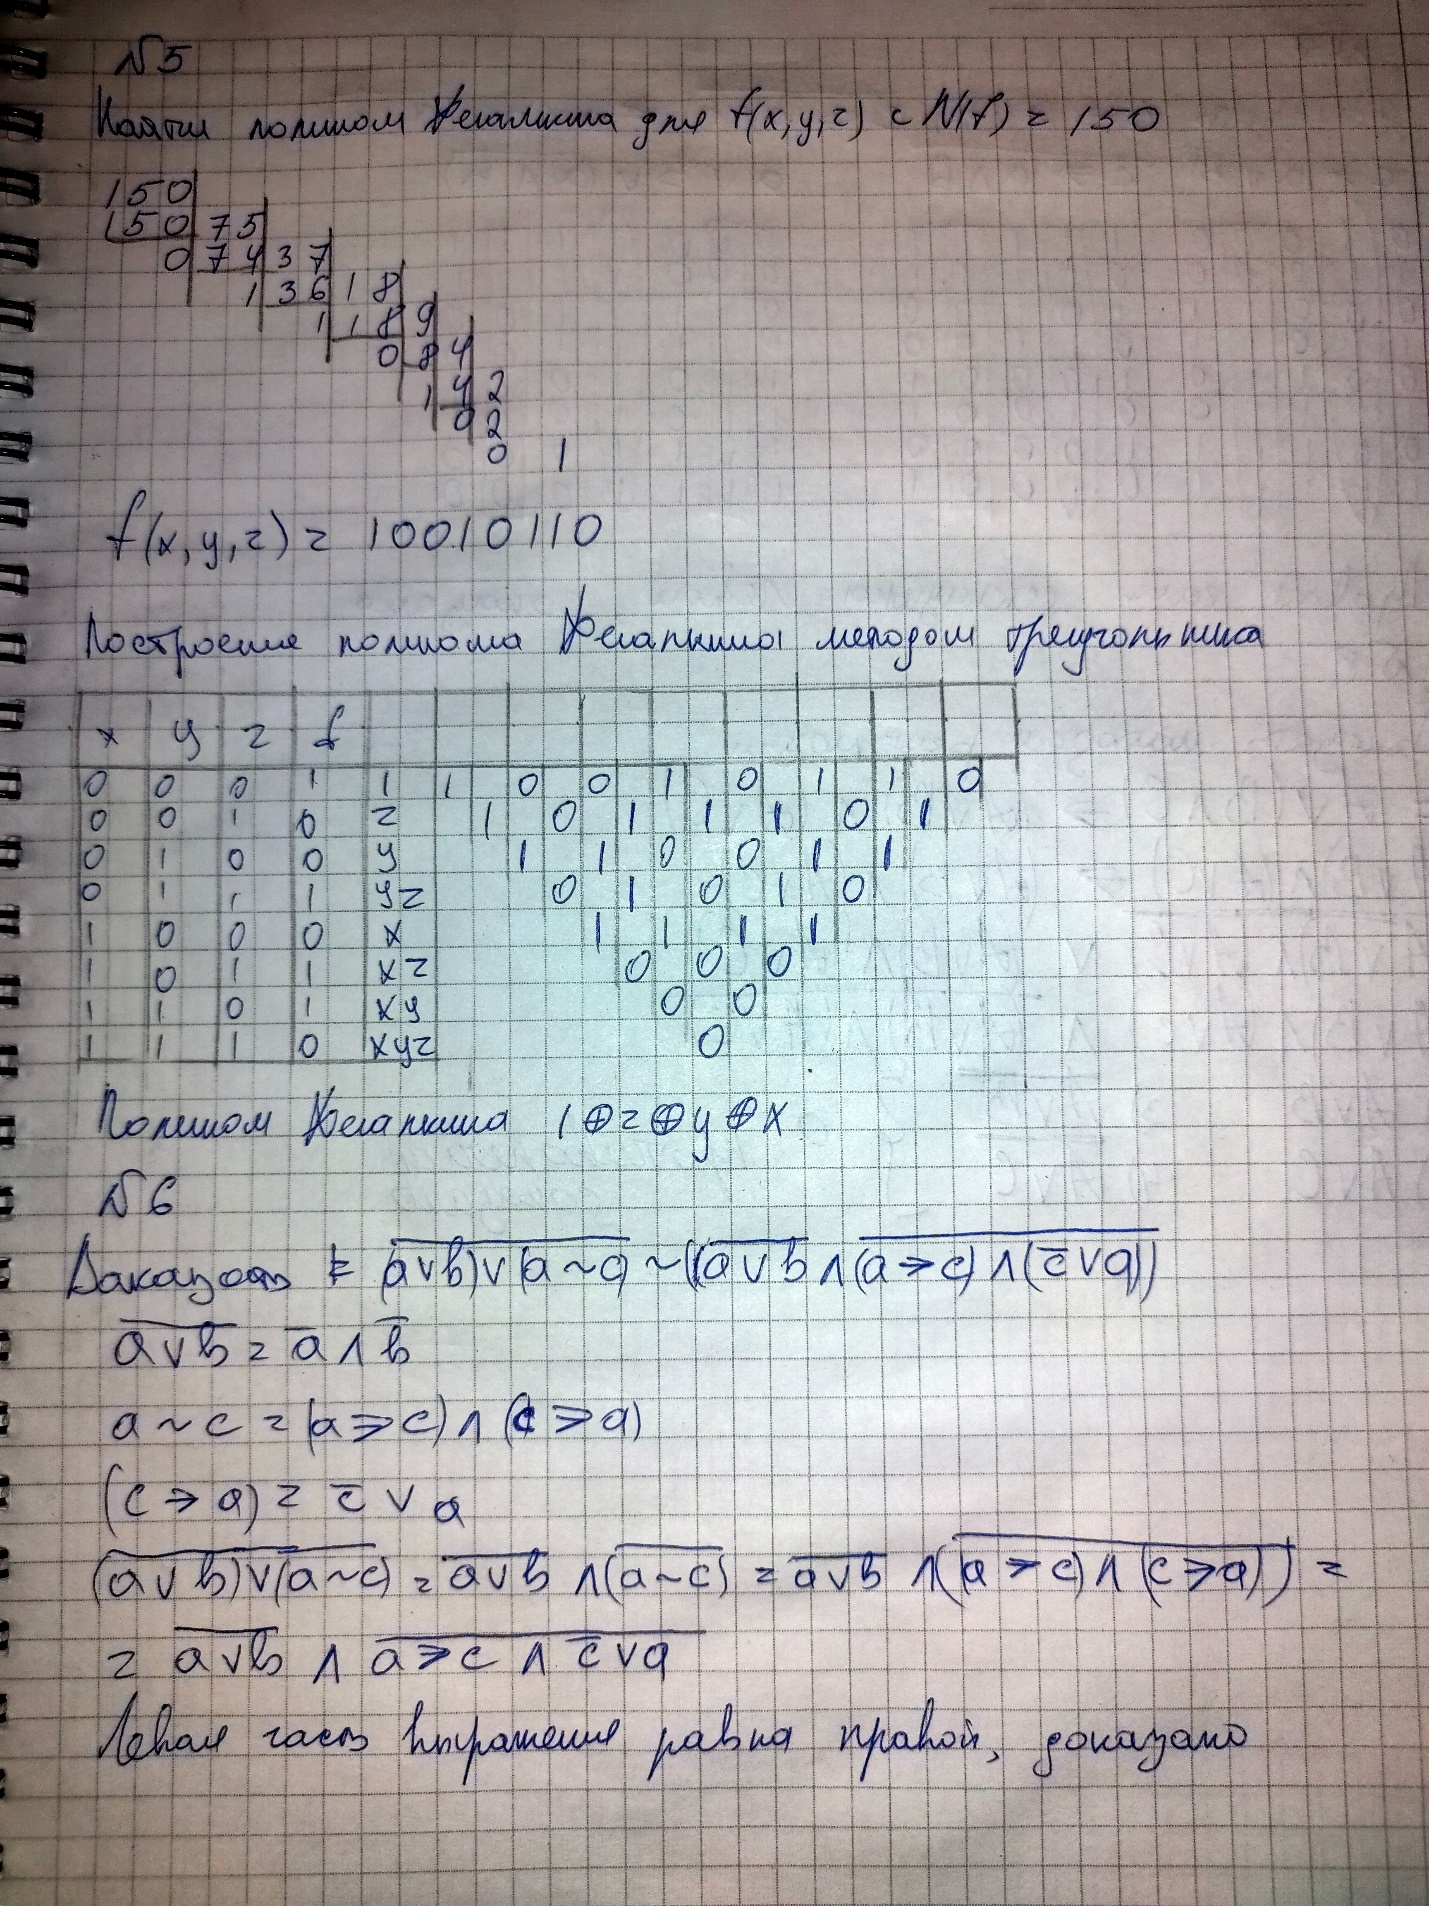 №5
Найти полином Жегалкина для f(x,y,z) с N(f) = 150
150
150 75
0 74 37
1 36 18
1 18 9
0 8 4
1 4 2
0 2
0 1
f(x,y,z) = 10010110
Построение полинома Жегалкина методом треугольника
x y z f
0 0 0 1 1 1 0 0 1 0 1 1 0
0 0 1 0 z 1 0 1 1 1 0 1
0 1 0 0 y 1 1 0 0 1 1
0 1 1 1 yz 0 1 0 1 0
1 0 0 0 x 1 1 1 1
1 0 1 1 xz 0 0 0
1 1 0 1 xy 0 0
1 1 1 0 xyz 0
Полином Жегалкина 1⊕z⊕y⊕x
№6
Доказать ⊨ (a̅ ̅∨̅ ̅b̅)̅ ̅∨̅ ̅(̅a̅ ̅~̅ ̅c̅)̅ ~ ((a̅ ̅∨̅ ̅b̅ ∧ (̅a̅ ̅→̅ ̅c̅)̅ ̅∧̅ ̅(̅c̅ ̅∨̅ ̅a̅)̅)
a̅ ̅∨̅ ̅b̅ = a̅ ∧ b̅
a ~ c = (a → c) ∧ (c → a)
(c → a) = c̅ ∨ a
(a̅ ̅∨̅ ̅b̅)̅ ̅∨̅ ̅(̅a̅ ̅~̅ ̅c̅)̅ = a̅ ̅∨̅ ̅b̅ ∧ (a̅ ̅~̅ ̅c̅) = a̅ ̅∨̅ ̅b̅ ∧ (̅(̅a̅ ̅→̅ ̅c̅)̅ ̅∧̅ ̅(̅c̅ ̅→̅ ̅a̅)̅)̅ =
= a̅ ̅∨̅ ̅b̅ ∧ a̅ ̅→̅ ̅c̅ ̅∧̅ ̅c̅ ̅∨̅ ̅a̅
Левая часть выражения равна правой, доказано